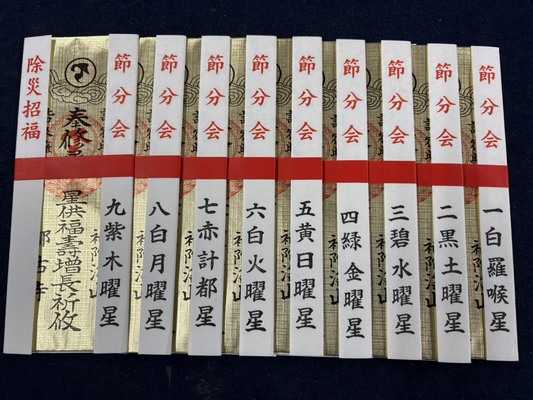 節分会
一白羅睺星
節分会
二黒土曜星
節分会
三碧水曜星
節分会
四緑金曜星
節分会
五黄日曜星
節分会
六白火曜星
節分会
七赤計都星
節分会
八白月曜星
節分会
九紫木曜星
奉修
星供福壽增長祈攸
除災招福